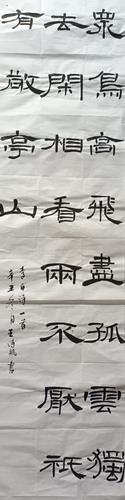 眾鳥高飛盡孤雲獨
去閑相看兩不厭祇
有敬亭山
李白詩一首
辛丑年月王海龍書